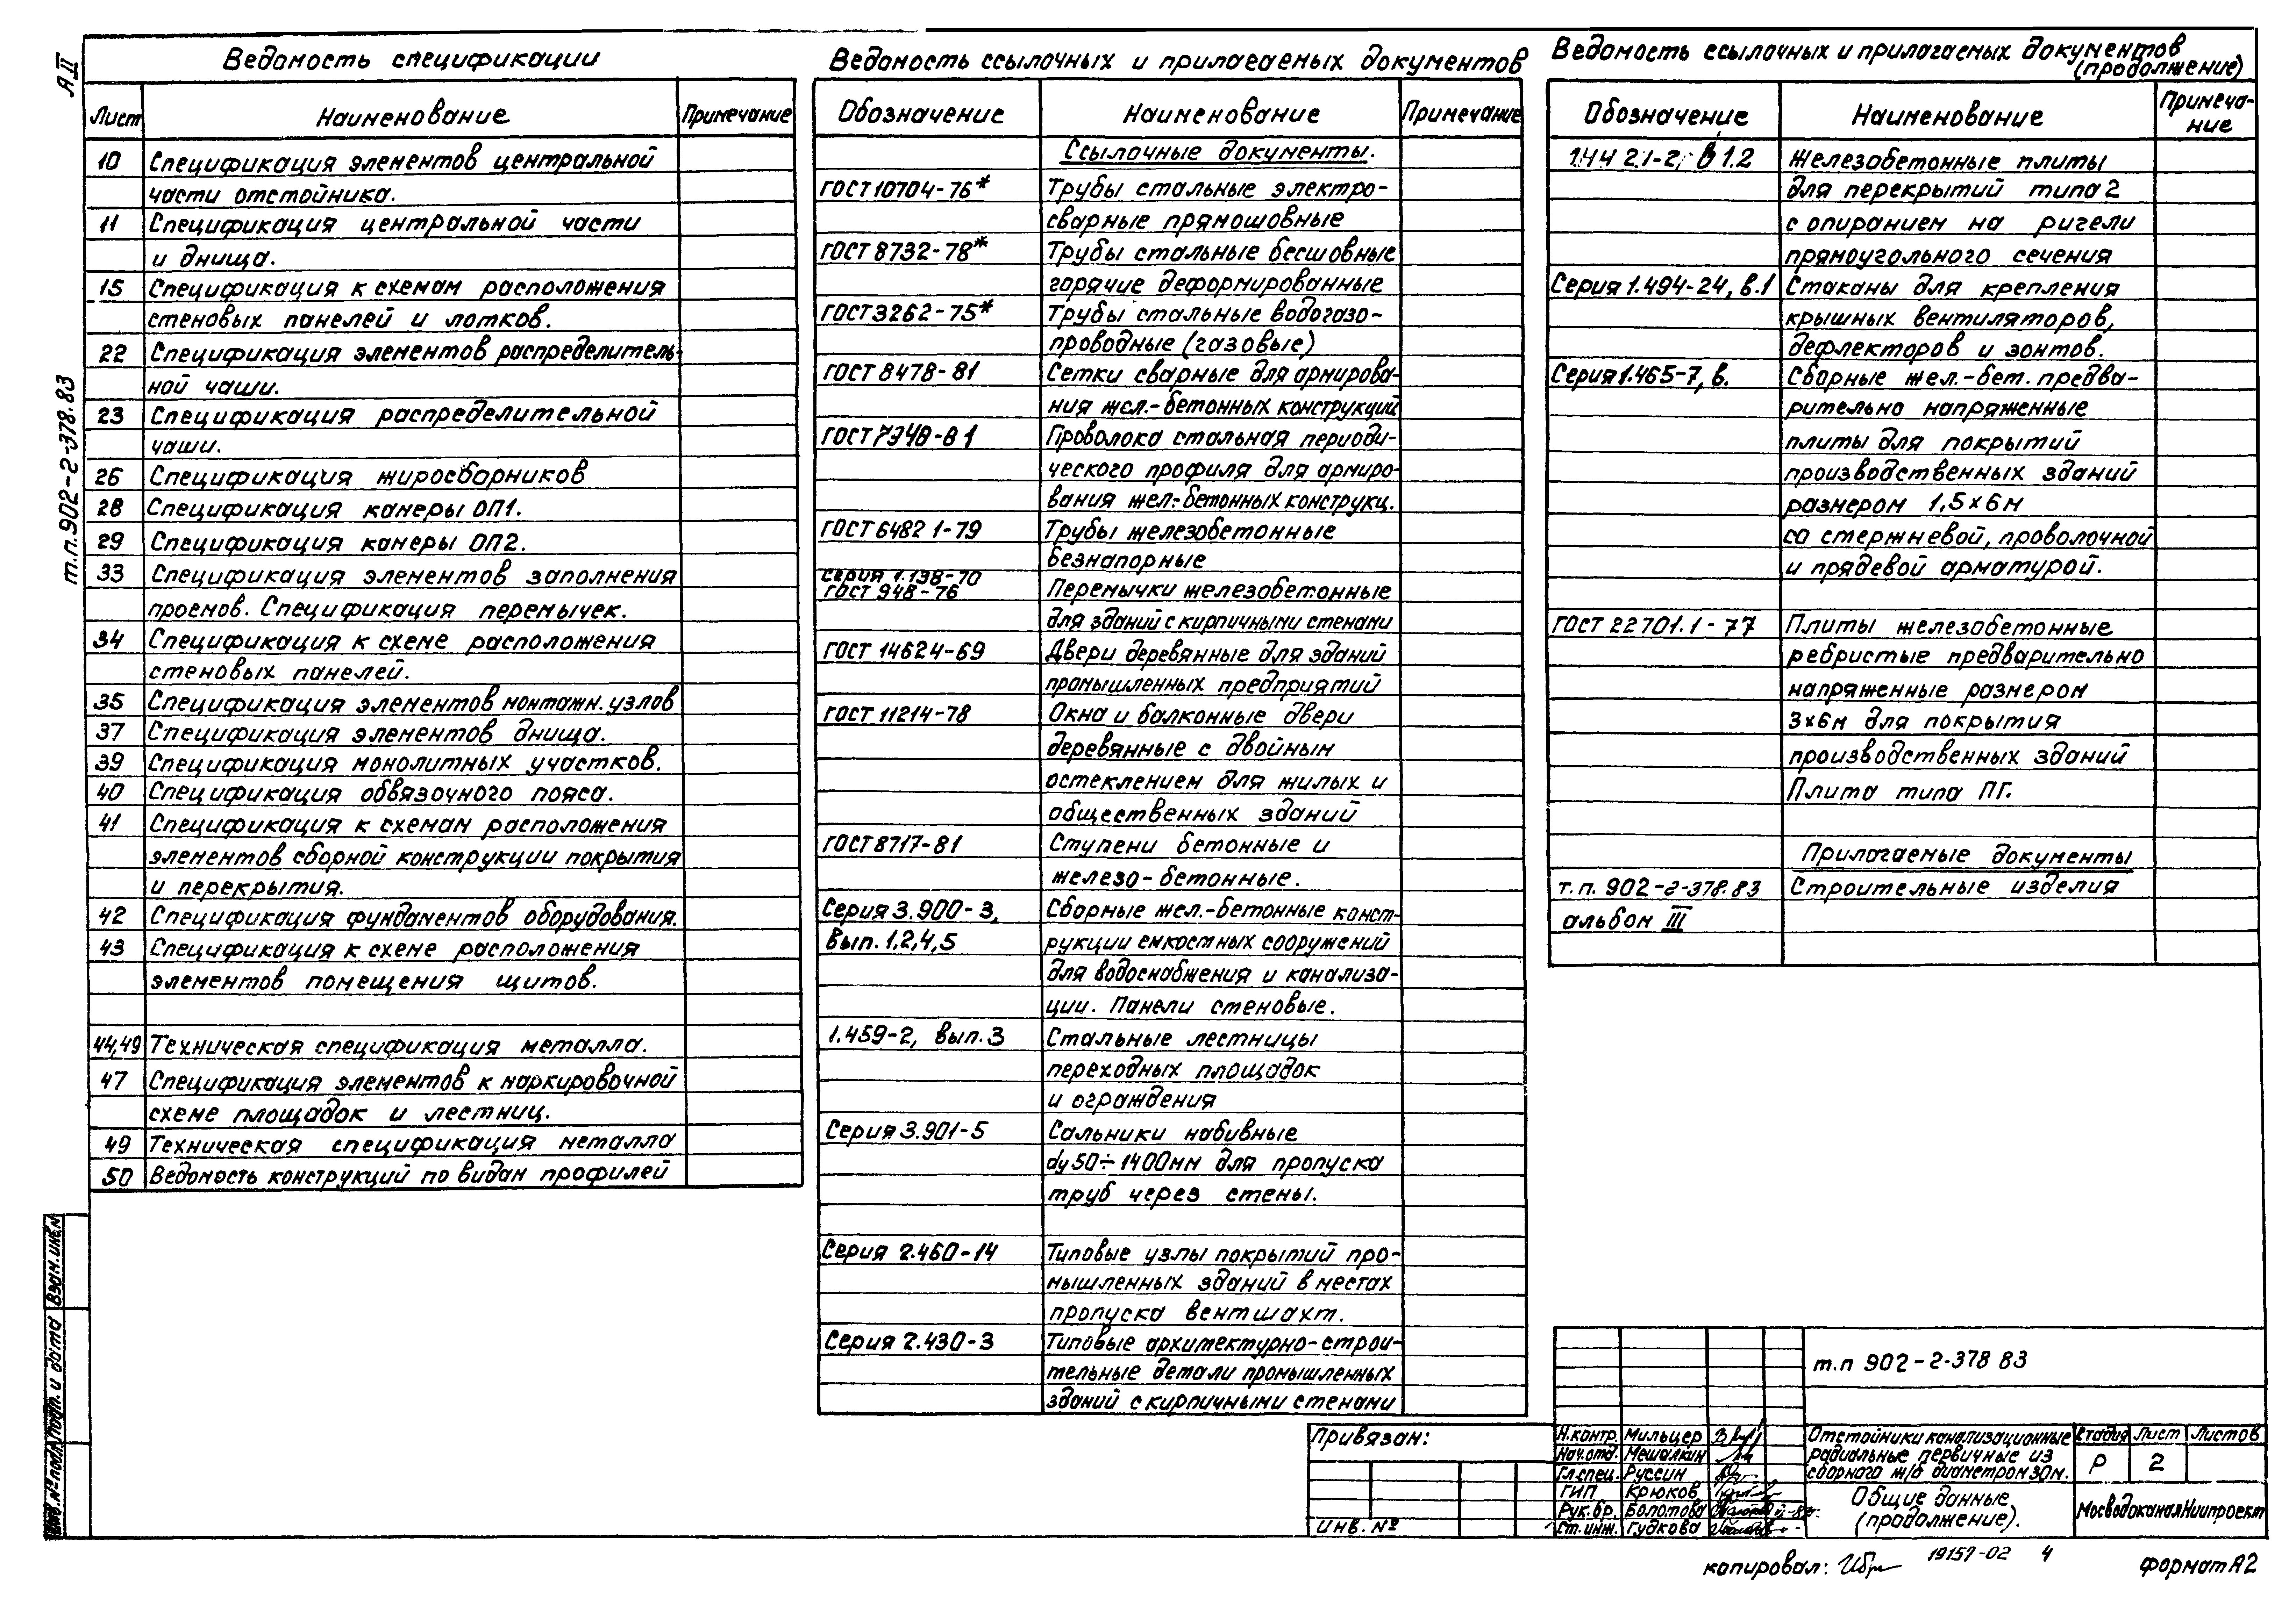 А II
т.п. 902-2-378.83
Ведомость спецификации
Лист Наименование Примечание
10 Спецификация элементов центральной
части отстойника.
11 Спецификация центральной части
и днища.
15 Спецификация к схемам расположения
стеновых панелей и лотков.
22 Спецификация элементов распределитель-
ной чаши.
23 Спецификация распределительной
чаши.
26 Спецификация жиросборников
28 Спецификация камеры ОП1.
29 Спецификация камеры ОП2.
33 Спецификация элементов заполнения
проемов. Спецификация перемычек.
34 Спецификация к схеме расположения
стеновых панелей.
35 Спецификация элементов монтажн. узлов
37 Спецификация элементов днища.
39 Спецификация монолитных участков.
40 Спецификация обвязочного пояса.
41 Спецификация к схемам расположения
элементов сборной конструкции покрытия
и перекрытия.
42 Спецификация фундаментов оборудования.
43 Спецификация к схеме расположения
элементов помещения щитов.
44,49 Техническая спецификация металла.
47 Спецификация элементов к маркировочной
схеме площадок и лестниц.
49 Техническая спецификация металла
50 Ведомость конструкций по видам профилей
Ведомость ссылочных и прилагаемых документов
Обозначение Наименование Примечание
Ссылочные документы.
ГОСТ 10704-76* Трубы стальные электро-
сварные прямошовные
ГОСТ 8732-78* Трубы стальные бесшовные
горячие деформированные
ГОСТ 3262-75* Трубы стальные водогазо-
проводные (газовые)
ГОСТ 8478-81 Сетки сварные для армирова-
ния жел.-бетонных конструкций
ГОСТ 7348-81 Проволока стальная периоди-
ческого профиля для армиро-
вания жел.-бетонных конструкц.
ГОСТ 6482 1-79 Трубы железобетонные
безнапорные
серия 1.138-70
ГОСТ 948-76 Перемычки железобетонные
для зданий с кирпичными стенами
ГОСТ 14624-69 Двери деревянные для зданий
промышленных предприятий
ГОСТ 11214-78 Окна и балконные двери
деревянные с двойным
остеклением для жилых и
общественных зданий
ГОСТ 8717-81 Ступени бетонные и
железо-бетонные.
Серия 3.900-3, Сборные жел.-бетонные конст-
вып. 1,2,4,5 рукции емкостных сооружений
для водоснабжения и канализа-
ции. Панели стеновые.
1.459-2, вып. 3 Стальные лестницы
переходных площадок
и ограждения
Серия 3.901-5 Сальники набивные
dу 50÷1400мм для пропуска
труб через стены.
Серия 2.460-14 Типовые узлы покрытий про-
мышленных зданий в местах
пропуска вентшахт.
Серия 2.430-3 Типовые архитектурно-строи-
тельные детали промышленных
зданий с кирпичными стенами
Ведомость ссылочных и прилагаемых документов
(продолжение)
Обозначение Наименование Примеча-
ние
1.44 2.1-2, в 1.2 Железобетонные плиты
для перекрытий типа 2
с опиранием на ригели
прямоугольного сечения
Серия 1.494-24, в.1 Стаканы для крепления
крышных вентиляторов,
дефлекторов и зонтов.
Серия 1.465-7, в. Сборные жел.-бет. предва-
рительно напряженные
плиты для покрытий
производственных зданий
размером 1,5х6м
со стержневой, проволочной
и прядевой арматурой.
ГОСТ 22701.1-77 Плиты железобетонные
ребристые предварительно
напряженные размером
3х6м для покрытия
производственных зданий
Плита типа ПГ.
Прилагаемые документы
т.п. 902-2-378.83 Строительные изделия
альбом III
Привязан:
Инв. №
т.п 902-2-378 83
Н.контр. Мильцер
Нач.отд. Мешалкин
Гл.спец. Руссин
ГИП Крюков
Рук.бр. Болотова
Ст.инж. Гудкова
Отстойники канализационные
радиальные первичные из
сборного ж/б диаметром 30м.
Стадия Лист Листов
Р 2
Общие данные
(продолжение).
МосводоканалНиипроект
копировал:
19157-02 4
формат А2
Взам. инв. №
Подп. и дата
Инв. № подл.